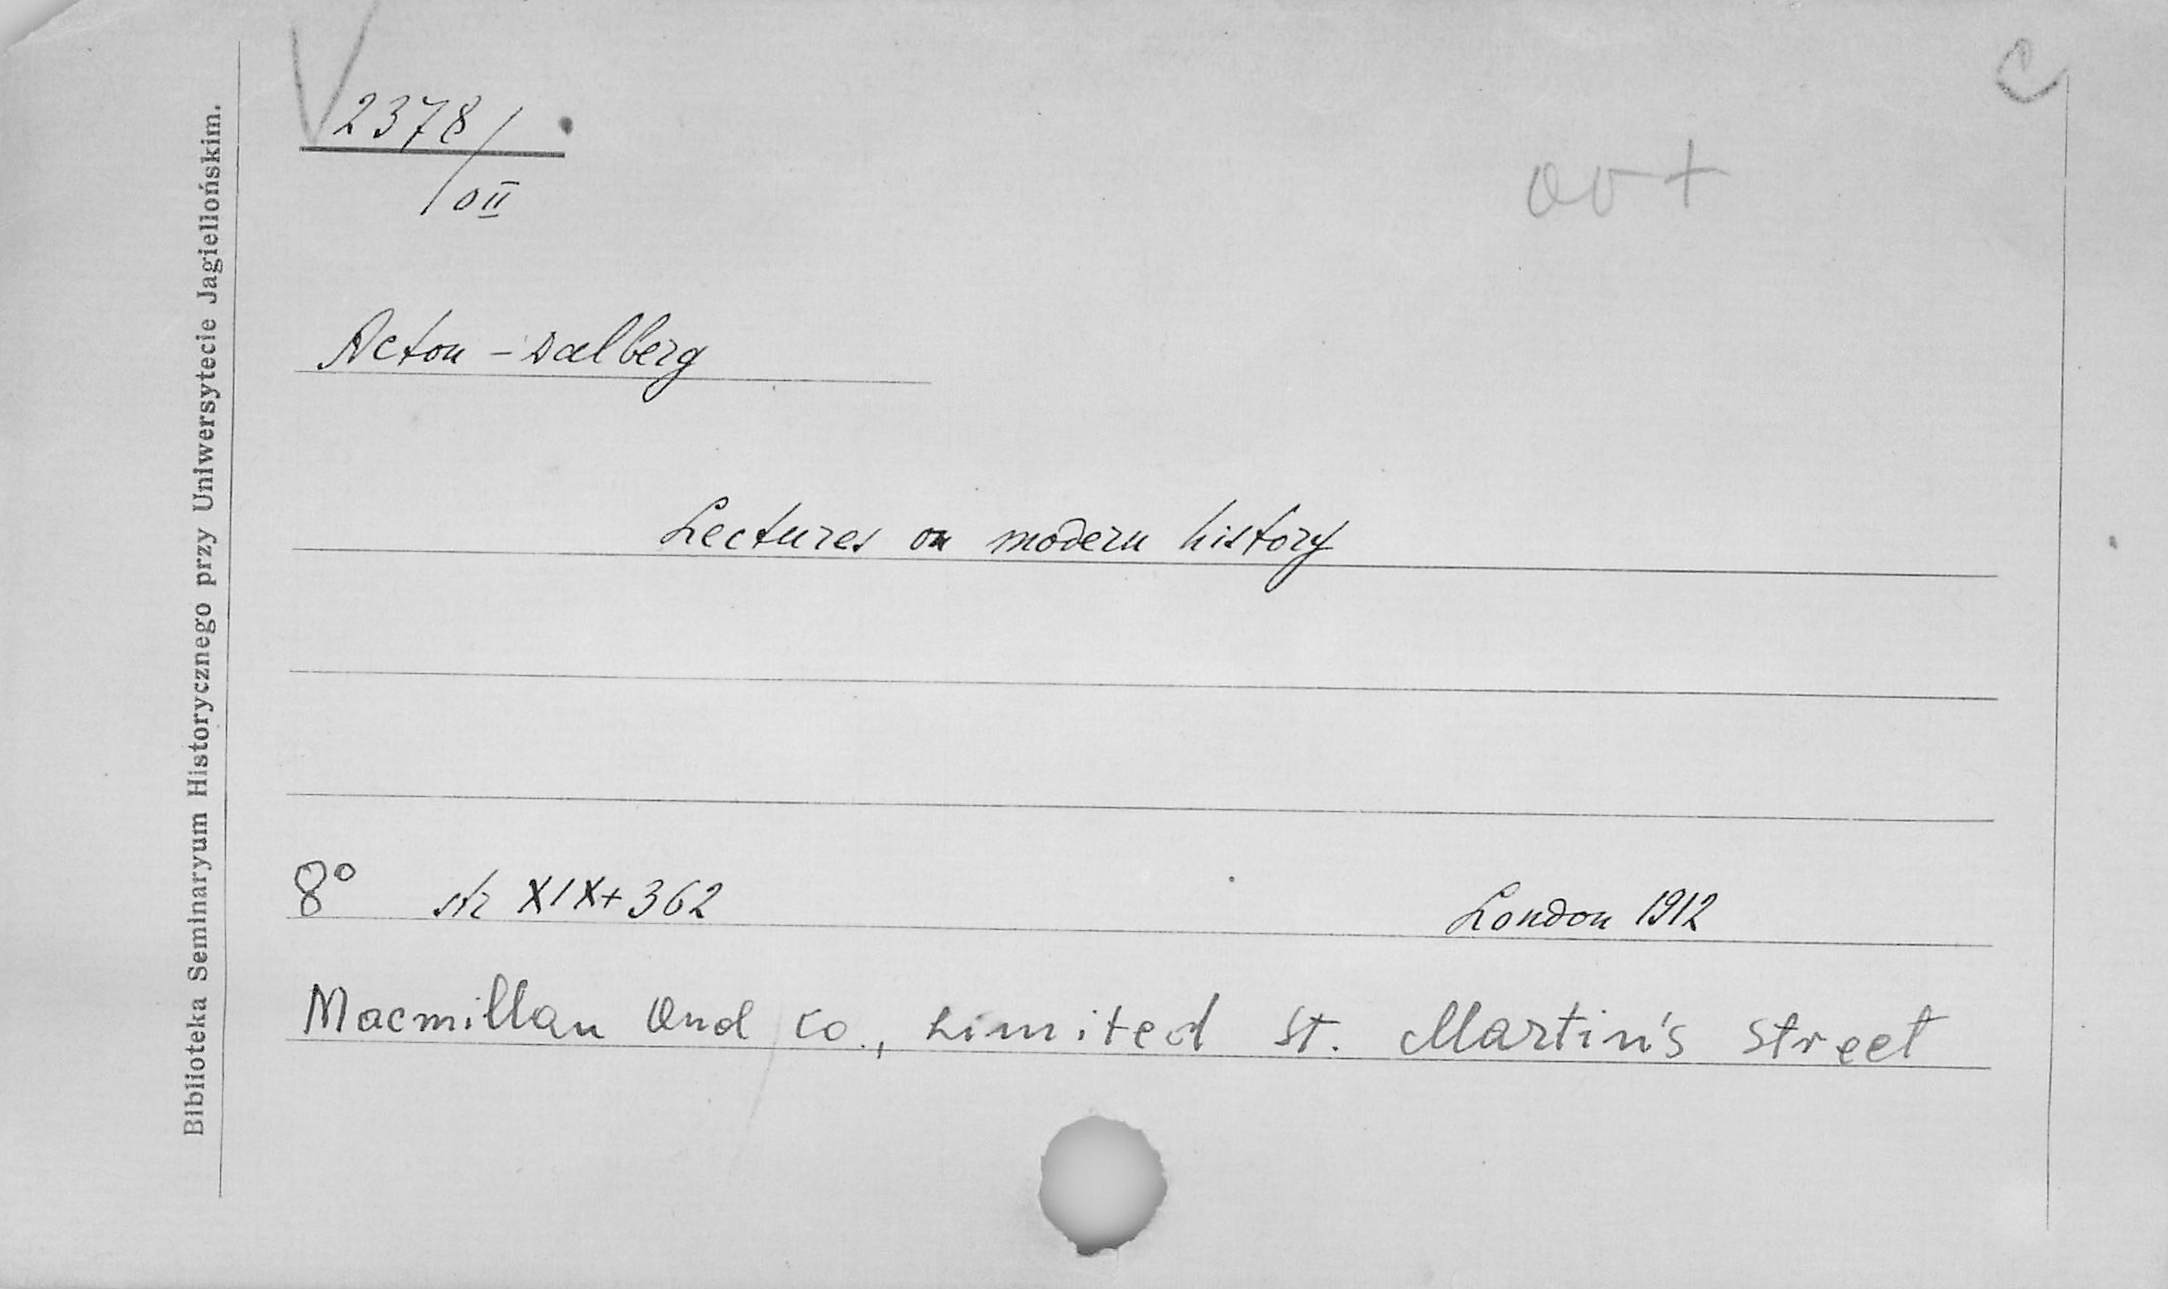 2378/
/oII
C
Acton - Dalberg
Lectures on modern history
8° str XIX+362 London 1912
Macmillan and Co., Limited St. Martin's Street
Biblioteka Seminaryum Historycznego przy Uniwersytecie Jagiellońskim.